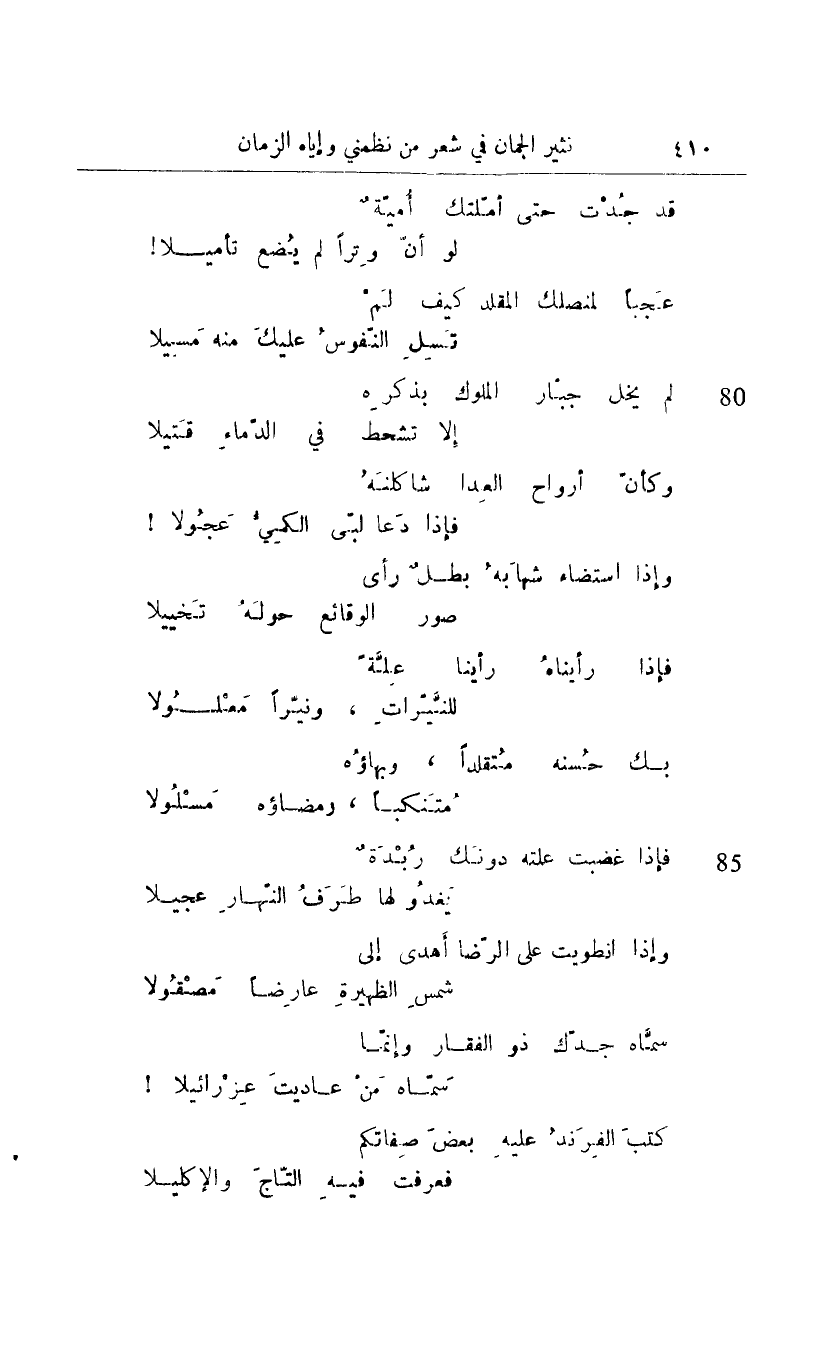 ٤١٠ نثير الجمان في شعر من نظمني وإياه الزمان
قد جُدْت حتى أمّلتك أُميّةٌ
لو أنّ وِتراً لم يُضع تأميلا!
عَجباً لمنصلك المقلد كيف لَمْ
تَسِلِ النّفوسُ عليكَ منه مَسيلا
80 لم يخل جبّار الملوك بذكرِه
إلا تشحط في الدّماءِ قَتيلا
وكأنّ أرواح العِدا شاكلنَهُ
فإذا دَعا لبّى الكميُّ عَجُولا !
وإذا استضاء شهابَهُ بطلٌ رأى
صور الوقائع حولَهُ تَخييلا
فإذا رأيناهُ رأينا عِلَّةً
للنَّيّراتِ ، ونيّراً مَعْلُولا
بك حُسنه مُتقلداً ، وبهاؤُه
مُتَنكباً ، ومضاؤه مَسْلُولا
85 فإذا غضبت علته دونَك رُبْدَةٌ
يَغدُو لها طَرَفُ النّهارِ عجيلا
وإذا انطويت على الرّضا أَهدى إلى
شمسِ الظهيرةِ عارِضاً مَصْقُولا
سمَّاه جدّك ذو الفقار وإنمّا
سَمّاه مَنْ عاديتَ عِزْرائيلا !
كتبَ الفِرَندُ عليهِ بعضَ صِفاتكم
فعرفت فيهِ التّاجَ والإكليلا